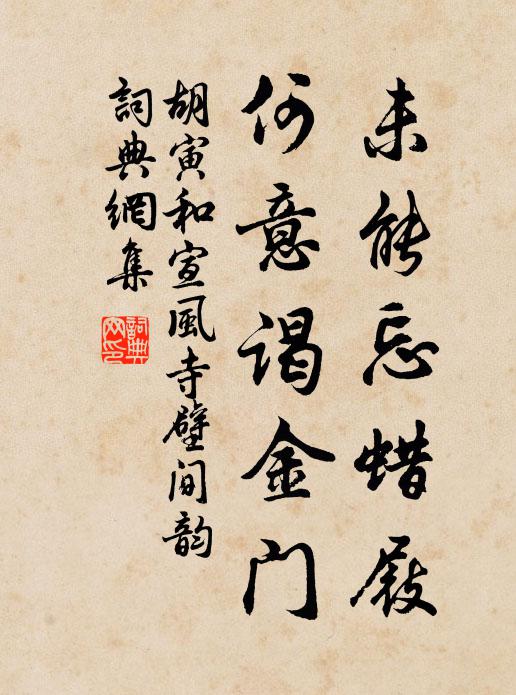 未能忘蜡屐
何意谒金门
胡寅和宣風寺壁间韵
詞典網集
詞典网印